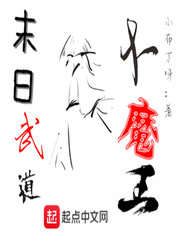 末日武道
小魔王
小布丁呀：著
起
起点中文网